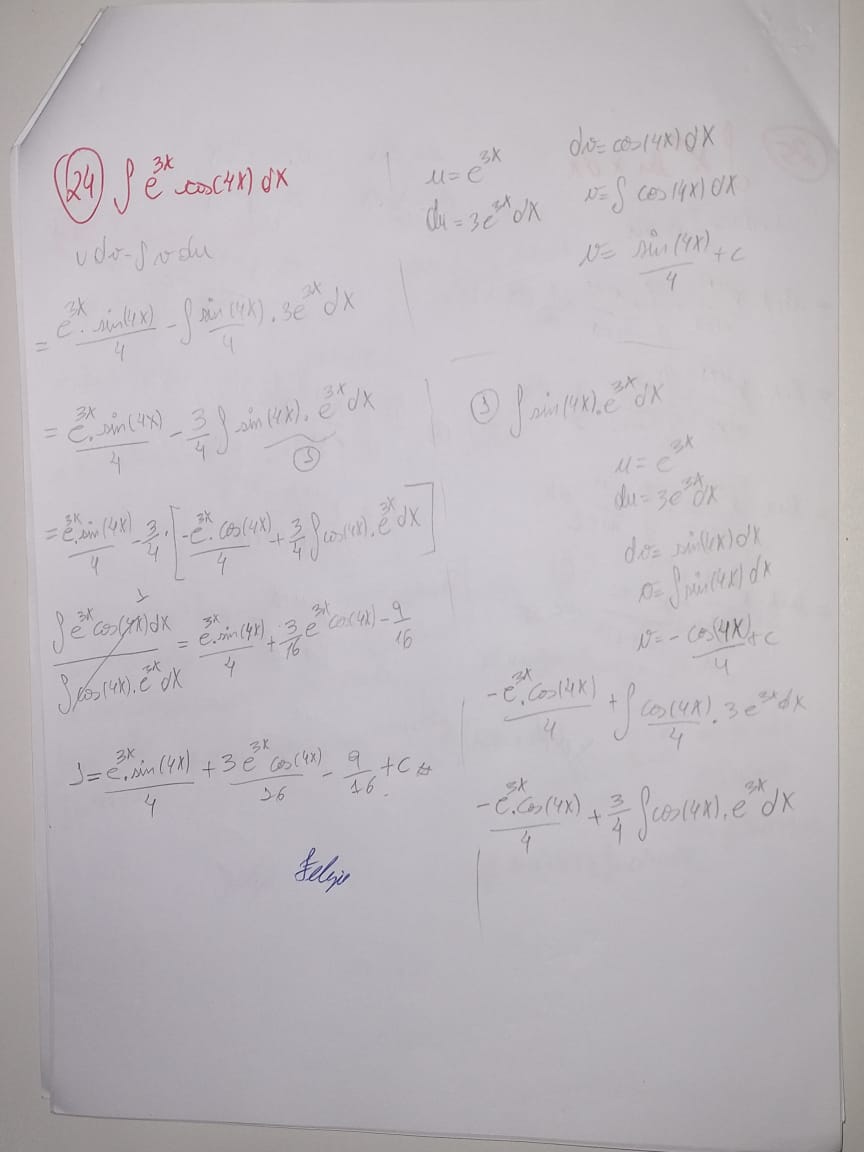 24 ∫ e^{3x} cos(4x) dx
u dv - ∫ v du
= e^{3x} . sin(4x)/4 - ∫ sin(4x)/4 . 3e^{3x} dx
= e^{3x} . sin(4x)/4 - 3/4 ∫ sin(4x) . e^{3x} dx
1
= e^{3x} . sin(4x)/4 - 3/4 . [ -e^{3x} . cos(4x)/4 + 3/4 ∫ cos(4x) . e^{3x} dx ]
1
∫ e^{3x} cos(4x) dx / ∫ cos(4x) . e^{3x} dx = e^{3x} . sin(4x)/4 + 3/16 e^{3x} cos(4x) - 9/16
1 = e^{3x} . sin(4x)/4 + 3e^{3x} cos(4x)/16 - 9/16 + c
u = e^{3x}
du = 3e^{3x} dx
dv = cos(4x) dx
v = ∫ cos(4x) dx
v = sin(4x)/4 + c
1 ∫ sin(4x) . e^{3x} dx
u = e^{3x}
du = 3e^{3x} dx
dv = sin(4x) dx
v = ∫ sin(4x) dx
v = - cos(4x)/4 + c
-e^{3x} . cos(4x)/4 + ∫ cos(4x)/4 . 3e^{3x} dx
-e^{3x} . cos(4x)/4 + 3/4 ∫ cos(4x) . e^{3x} dx